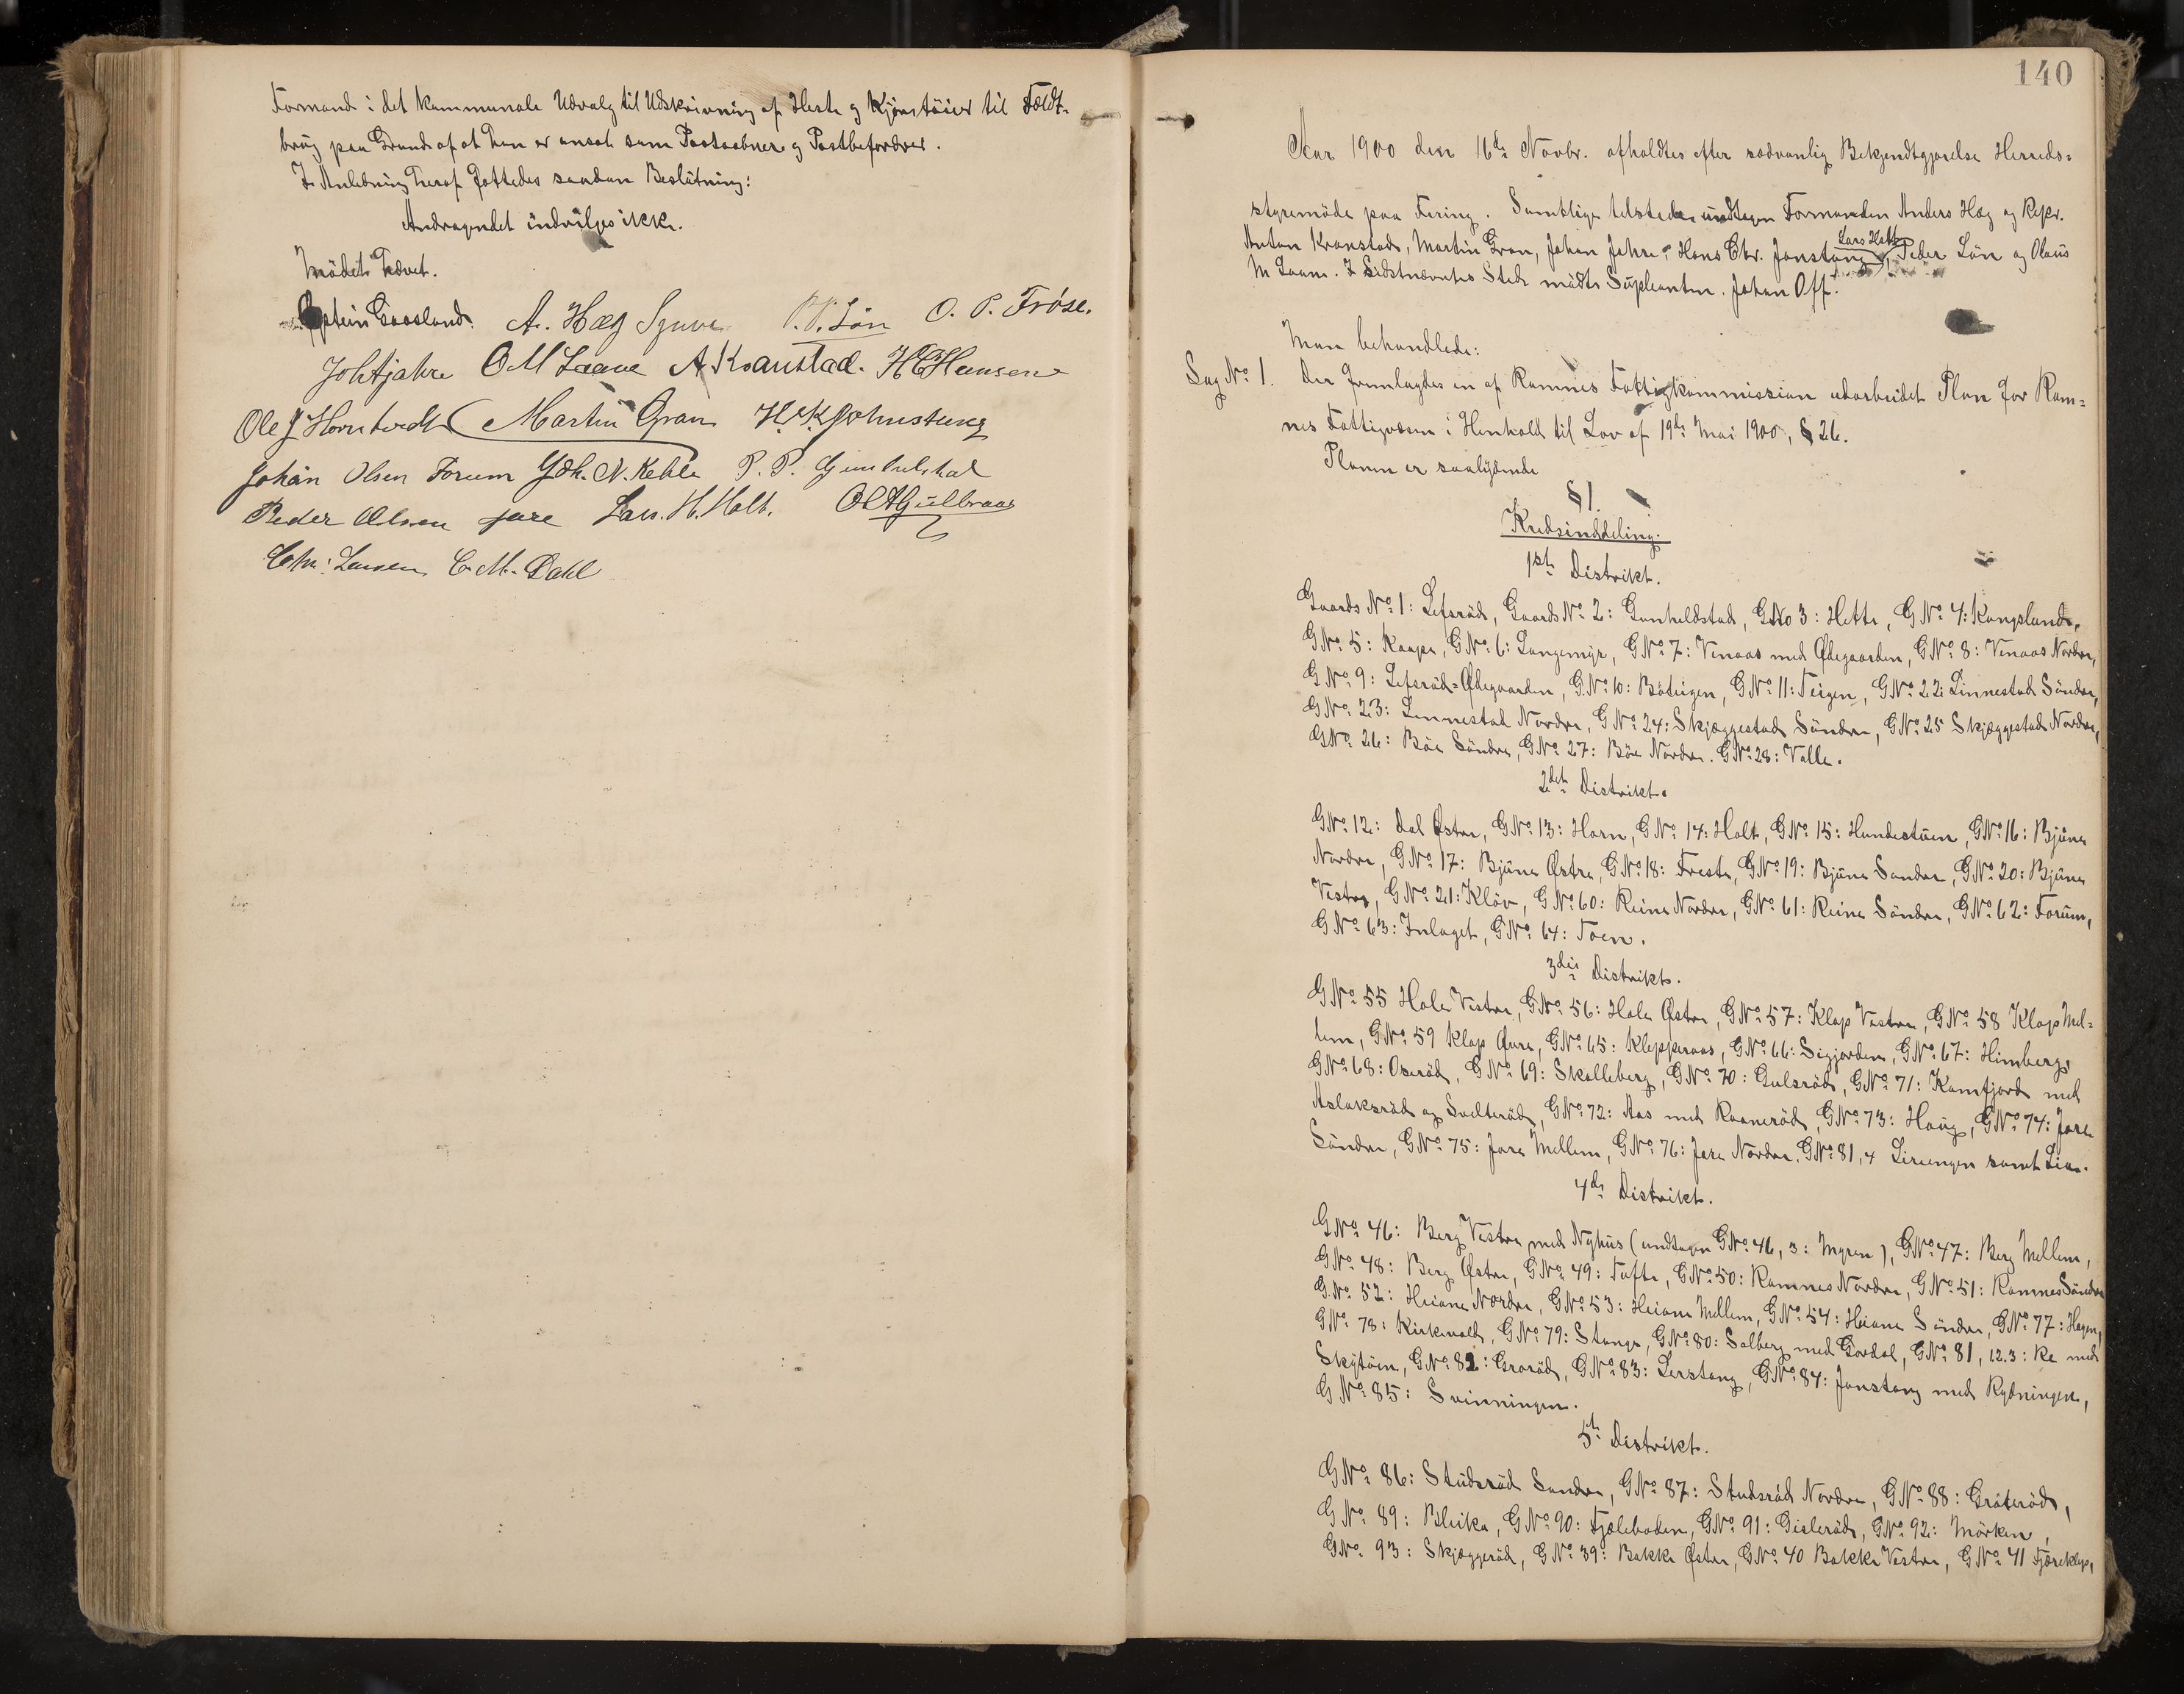 Formand i det kommunale Udvalg til Udskrivning af Heste og Kjøretöier til Feldt-
brug paa Grund af at han er ansat som Postaabner og Postbefordrer.
I Anledning heraf fattedes saadan Beslutning:
Andragendet indvilges ikke.
Mödet hævet.
Goosland. A. Hæg Synve P. P. Lön O. P. Fröse.
Joh Ajahre O M Laane A Kranstad. H C Hansen
Ole J Horntvedt Martin Gran H. K. Johnstang
Johan Olsen Forum Joh. N. Kehle P. P. Gunhildstad
Peder Olsen Jare Lars. H. Holt. O A Gulbraar
Chr: Larsen C. M. Dahl
140
Aar 1900 den 16de Novbr. afholdtes efter sædvanlig Bekjendtgjørelse Herreds=
styremöde paa Fering. Samtlige tilstede undtagen Formanden Anders Hæg og Repr.
Lars Holt
Anton Kranstad, Martin Gran, Johan Jahre, Hans Chr. Jonstang, Peder Lön og Olaus
M Laane. I Sidstnævntes Sted mödte Supleanten Johan Off.
Man behandlede:
Sag No 1. Der fremlagdes en af Ramnes Fattigkommission udarbeidet Plan for Ram=
nes Fattigvæsen i Henhold til Lov af 19de Mai 1900, § 26.
Planen er saalydende
§1.
Kredsinddeling.
1ste Distrikt.
Gaards No 1: Lefsröd, Gaards No 2: Gunhildstad, GNo 3: Hette, GNo 4: Kongslund,
GNo 5: Kaape, GNo 6: Langemyr, GNo 7: Vinaas med Ødegaarden, GNo 8: Vinaas Nordre,
GNo 9: Lefsröd=Ødegaarden, GNo 10: Böteigen, GNo 11: Teigen, GNo 22: Linnestad Söndre,
GNo 23: Linnestad Nordre, GNo 24: Skjæggestad Söndre, GNo 25 Skjæggestad Nordre,
GNo 26: Böe Söndre, GNo 27: Böe Nordre. GNo 28: Valle.
2det Distrikt.
GNo 12: Dal Østre, GNo 13: Horn, GNo 14: Holt, GNo 15: Hundestuen, GNo 16: Bjune
Nordre, GNo 17: Bjune Østre, GNo 18: Freste, GNo 19: Bjune Söndre, GNo 20: Bjune
Vestre, GNo 21: Klöv, GNo 60: Reine Nordre, GNo 61: Reine Söndre, GNo 62: Forum,
GNo 63: Inlaget, GNo 64: Toen.
3die Distrikt.
GNo 55 Hole Vestre, GNo 56: Hole Østre, GNo 57: Klop Vestre, GNo 58 Klop Mel=
lem, GNo 59 Klop Øvre, GNo 65: Klepperaas, GNo 66: Sigjorden, GNo 67: Himberg,
GNo 68: Oseröd, GNo 69: Skolleberg, GNo 70: Gulsröd, GNo 71: Kamfjord med
Aslaksröd og Svelteröd, GNo 72: Aas med Raaneröd, GNo 73: Haug, GNo 74: Jare
Söndre, GNo 75: Jare Mellem, GNo 76: Jare Nordre. GNo 81, 4 Lireengen samt Lien.
4de Distrikt.
GNo 46: Berg Vestre med Nyhus (undtagen GNo 46, 3: Myren), GNo 47: Berg Mellem,
GNo 48: Berg Østre, GNo 49: Tufte, GNo 50: Ramnes Nordre, GNo 51: Ramnes Söndre
GNo 52: Heiane Nordre, GNo 53: Heiane Mellem, GNo 54: Heiane Söndre, GNo 77: Hagen,
GNo 78: Kirkevold, GNo 79: Stange, GNo 80: Solberg med Gordal, GNo 81, 1.2.3: Re med
Skytöien, GNo 82: Groröd, GNo 83: Lerstang, GNo 84: Jonstang med Rydningen,
GNo 85: Svinningen.
5te Distrikt.
GNo 86: Studsröd Söndre, GNo 87: Studsröd Nordre, GNo 88: Gröteröd,
GNo 89: Bleika, GNo 90: Fjæleboden, GNo 91: Gisleröd, GNo 92: Mörken,
GNo 93: Skjæggeröd, GNo 39: Bakke Østre, GNo 40 Bakke Vestre, GNo 41 Fjæreklep,